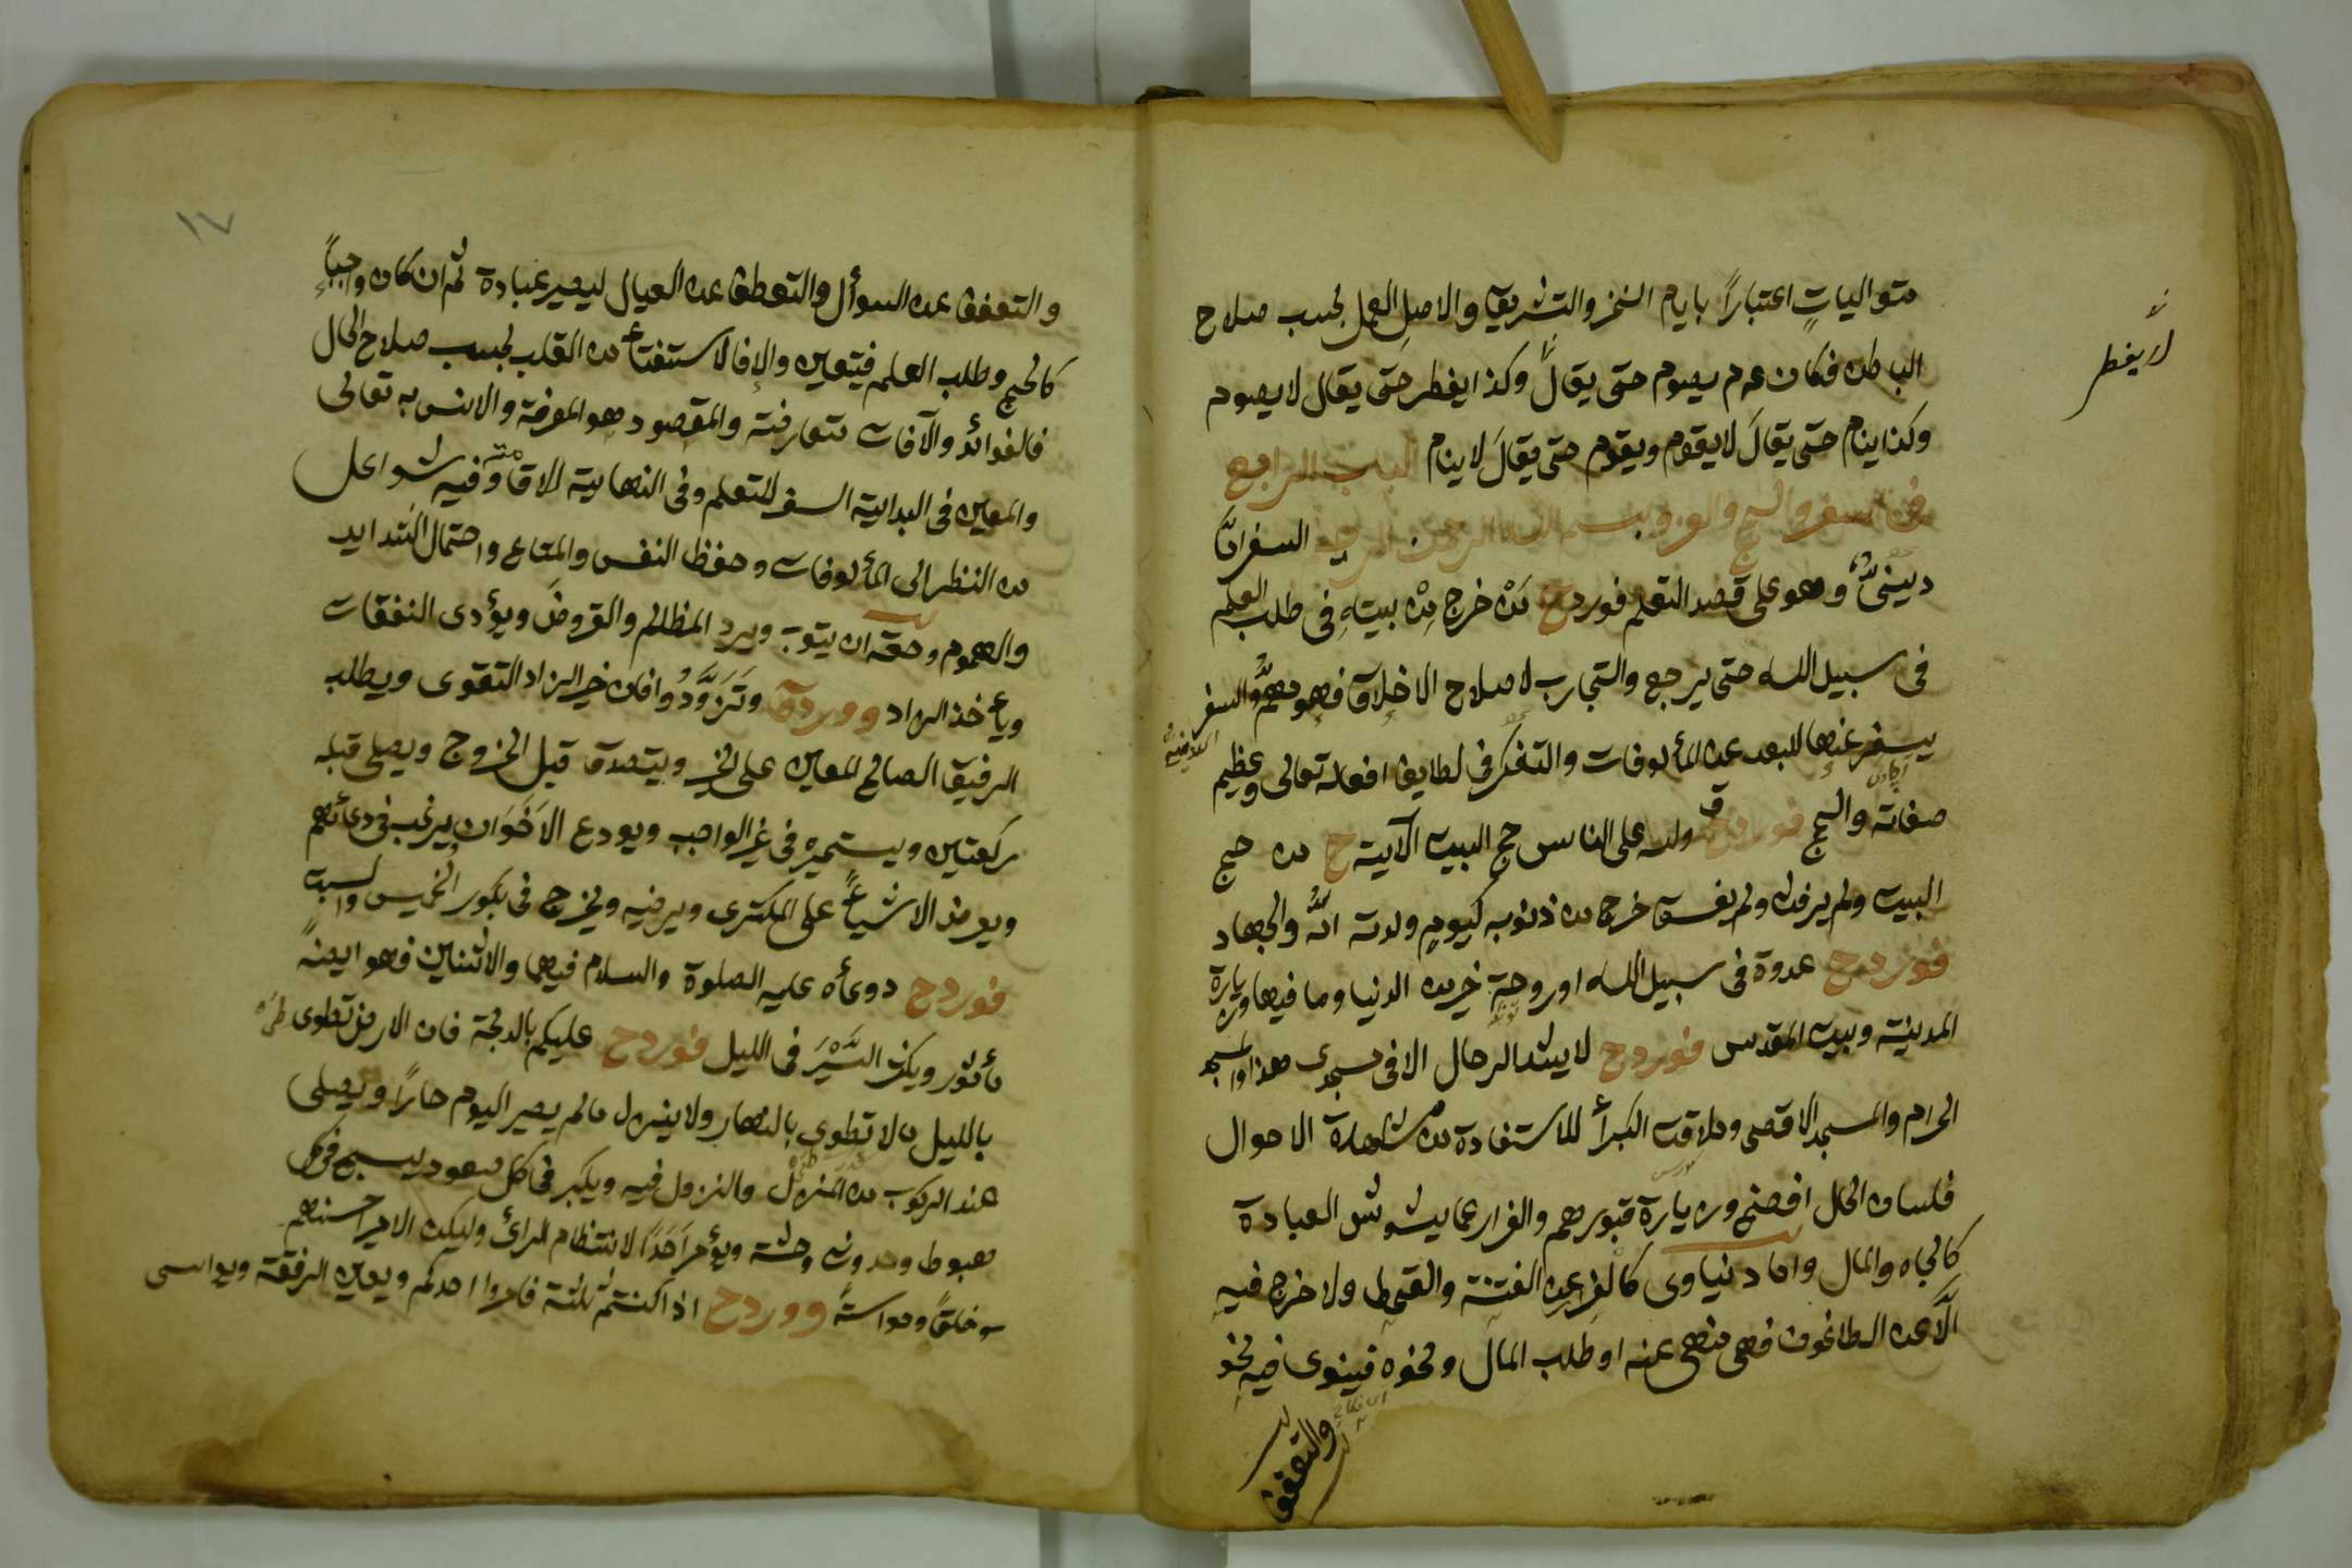 متواليات اعتباراً بايام النحر والتشريق والاصل العمل بحسب صلاح
الباطن فكان عم يصوم حتى يقال وكذا يفطر حتى يقال لا يصوم
لا يفطر
وكذا ينام حتى يقال لا يقوم ويقوم حتى يقال لا ينام الباب الرابع
فى السفر والحج والغزو بسم الله الرحمن الرحيم السفر امّا
دينىّ وهو على قصد التعلم فورد ح مَنْ خرج مِنْ بيته فى طلب العلم
فى سبيل الله حتى يرجع والتجارب لاصلاح الاخلاق فهو مهمّ والسفر
يسفر عنها للبعد عن المألوفات والتفكر فى لطايف افعاله تعالى وعظيم
صفاته والحج فورد ولله على الناس حج البيت الآية ح من حج
البيت ولم يرفث ولم يفسق خرج من ذنوبه كيوم ولدته امّه والجهاد
فورد ح غدوة فى سبيل الله او روحة خير من الدنيا وما فيها وزيارة
المدينة وبيت المقدس فورد ح لا يشد الرحال الا فى مسجدى هذا والمسجد
الحرام والمسجد الاقصى وملاقت الكبرأ للاستفادة من مشاهدة الاحوال
فلسان الحال افصح وزيارة قبورهم والفرار عما يشوش العبادة
كالجاه والمال واما دنياوى كالفرار عن الفتنة والقحط ولا خرج فيه
الّا عن الطاعون فهى منهى عنه او طلب المال ونحوه فينوى فيه نحو
والتعفف
١٧
والتعفف عن السوأل والتعطف عن العيال ليصير عبادة ثم ان كان واجباً
كالحج وطلب العلم فيتعين والا فالاستفتاء من القلب بحسب صلاح الحال
فالفوائد والآفات متعارفة والمقصود هو المعرفة والانس به تعالى
والمعين فى البداية السفر للتعلم وفى النهاية الاقامة وفيه شواغل
من النظر الى المألوفات وحفظ النفس والمتاع واحتمال الشدايد
والهموم وحقه ان يتوب ويرد المظالم والقروض ويؤدى النفقات
ويأخذ الزاد وورد وَتَزَوَّدُوا فان خير الزاد التقوى ويطلب
الرفيق الصالح المعين على الخير ويتصدق قبل الخروج ويصلى قبله
ركعتين ويستخيره فى غير الواجب ويودع الاخوان يرغب فى دعائهم
ويعرض الاشياء على المكترى ويرضيه ويخرج فى بكور الخميس والسبت
فورد ح دوعأه عليه الصلوة والسلام فيهما والاثنين فهو ايضاً
مأثور ويكثر السَّيْرَ فى الليل فورد ح عليكم بالدلجة فان الارض تطوى
بالليل ما لا تطوى بالنهار ولا ينزل ما لم يصير اليوم حاراً ويصلى
عند الركوب من المنزل والنزول فيه ويكبر فى كل صعود يسبح فى كل
هبوط وحدوث وحشة ويؤمر اَحَدًا لانتظام الرأى وليكن الامير احسنهم
خلقاً ومواسةً وورد ح اذا كنتم ثلثة فامروا احدكم ويعين الرفقة ويواسى